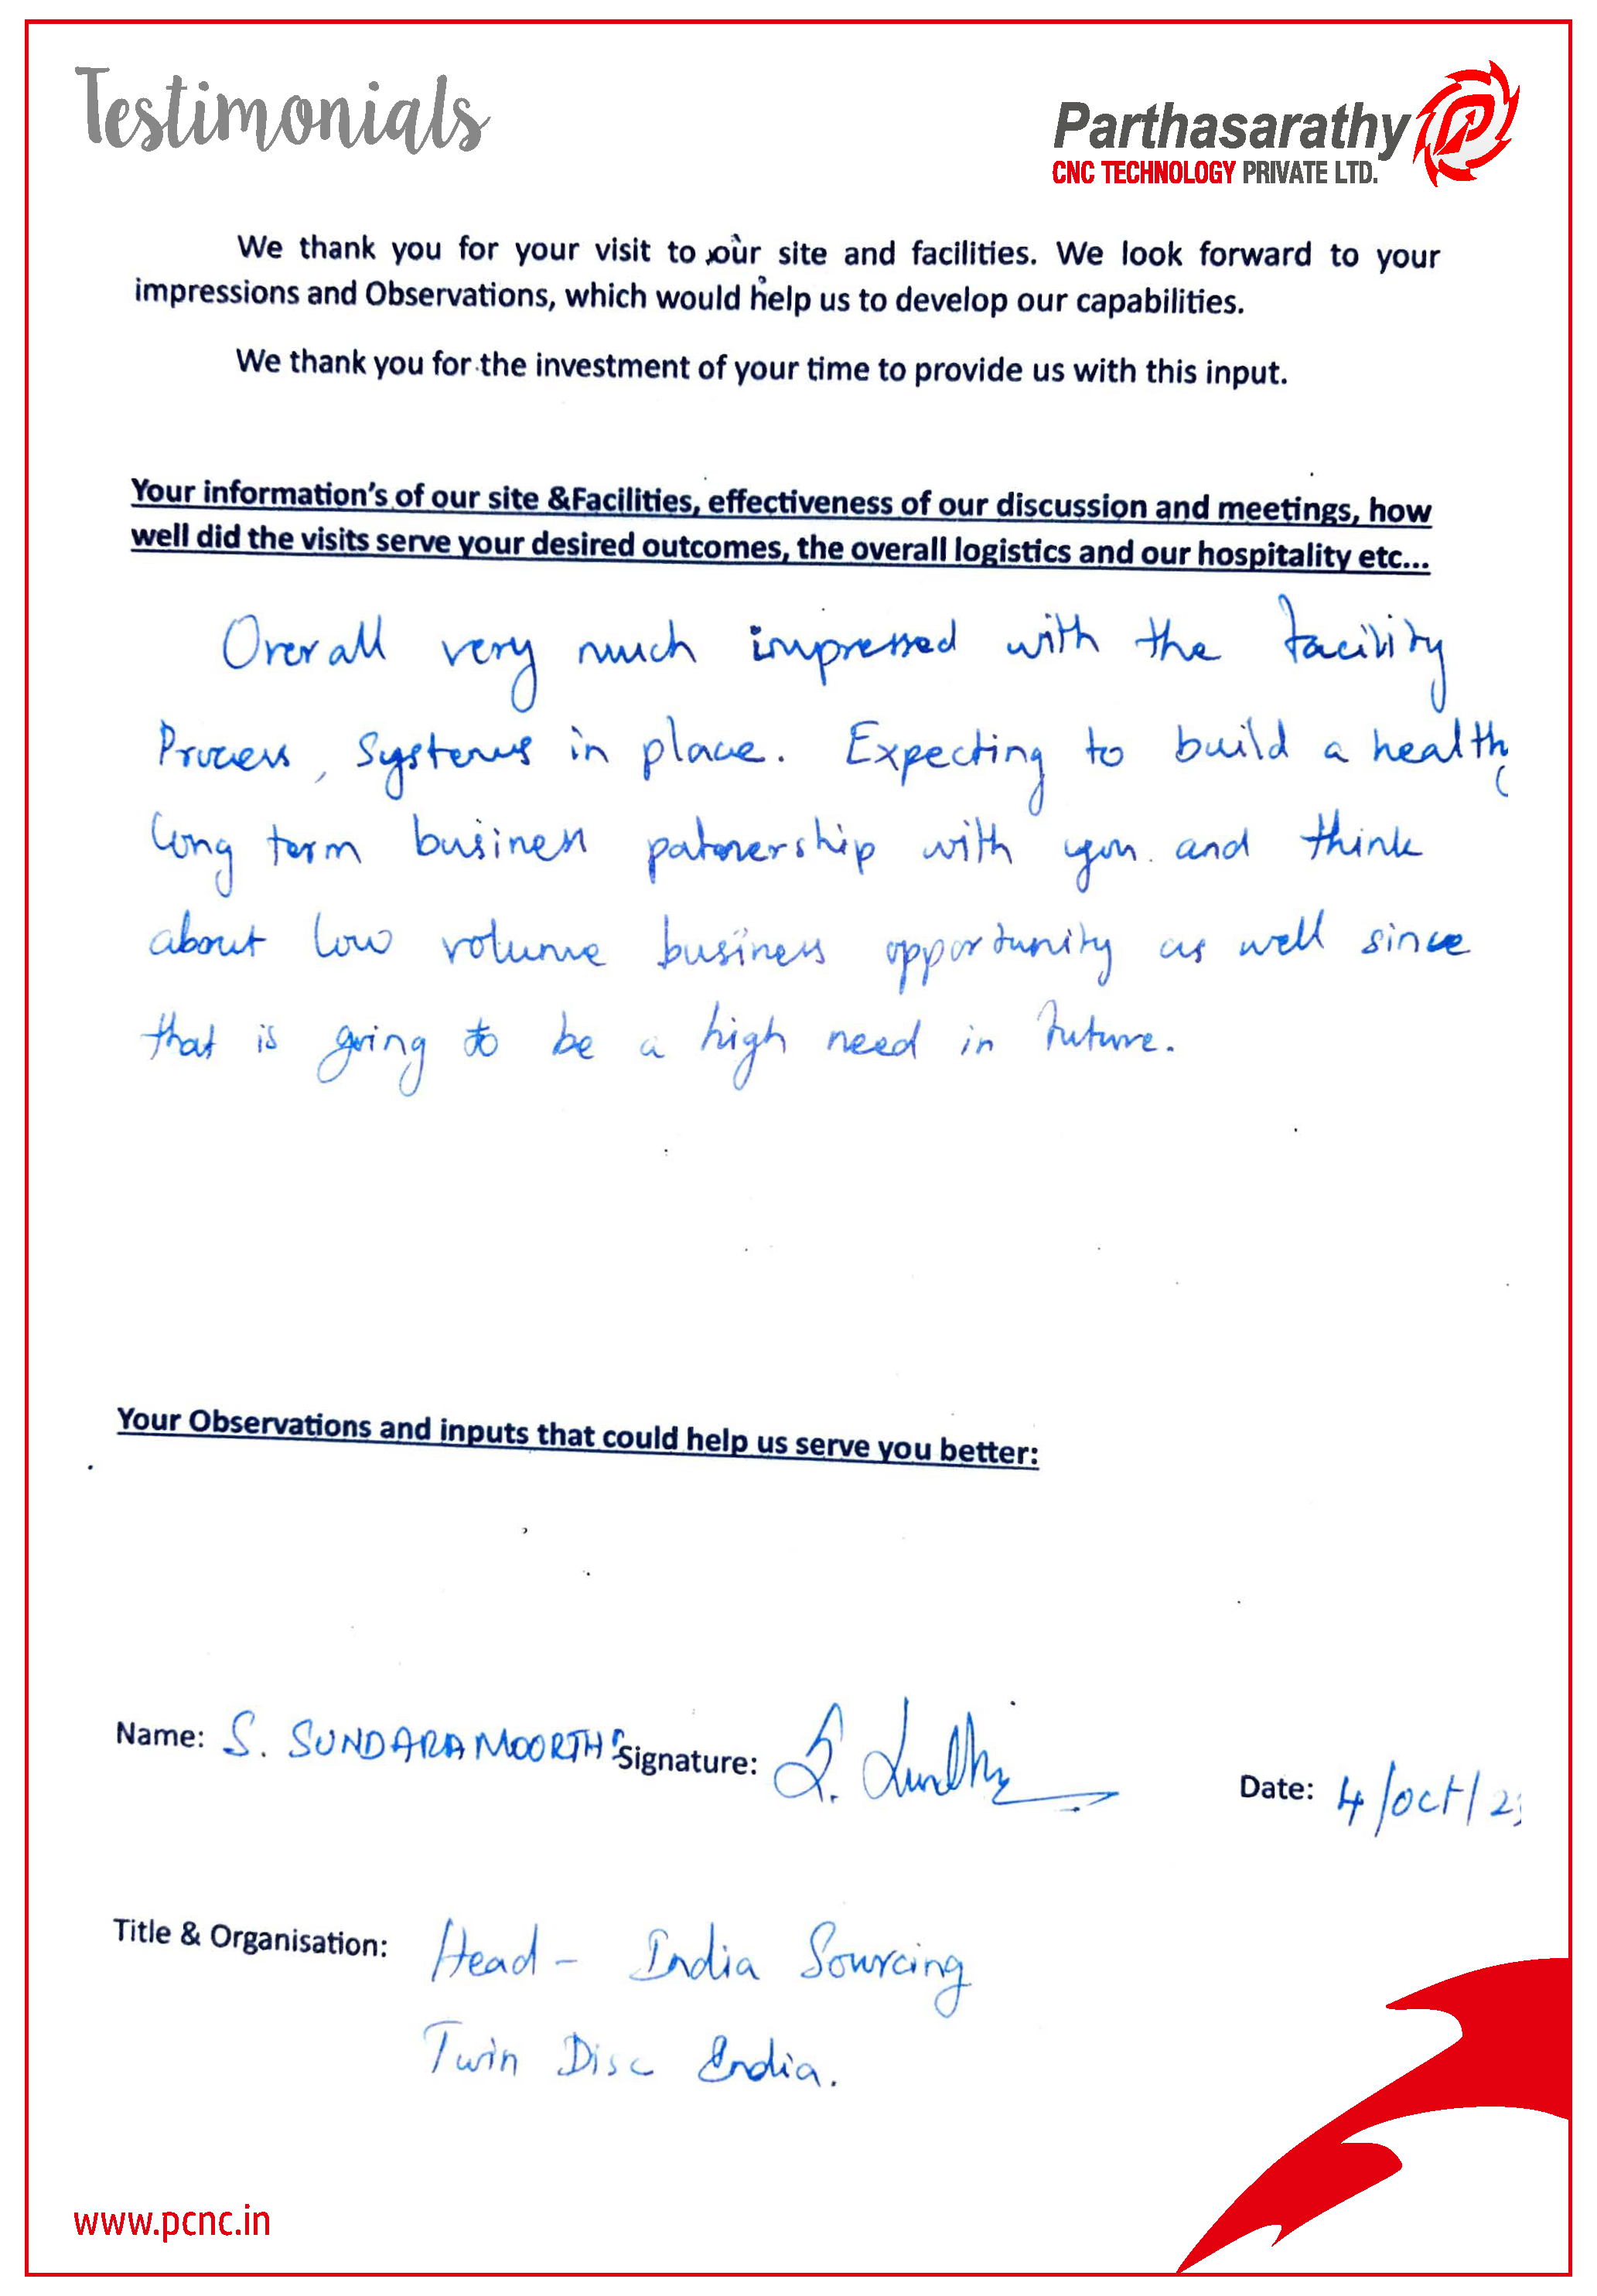 Testimonials
Parthasarathy
CNC TECHNOLOGY PRIVATE LTD.
We thank you for your visit to our site and facilities. We look forward to your
impressions and Observations, which would help us to develop our capabilities.
We thank you for the investment of your time to provide us with this input.
Your information's of our site &Facilities, effectiveness of our discussion and meetings, how
well did the visits serve your desired outcomes, the overall logistics and our hospitality etc...
Overall very much impressed with the facility
Process, Systems in place. Expecting to build a healthy
long term business partnership with you and think
about low volume business opportunity as well since
that is going to be a high need in future.
Your Observations and inputs that could help us serve you better:
Name: S. SUNDARAMOORTHY Signature:
Date: 4/Oct/2
Title & Organisation: Head - India Sourcing
Twin Disc India.
www.pcnc.in